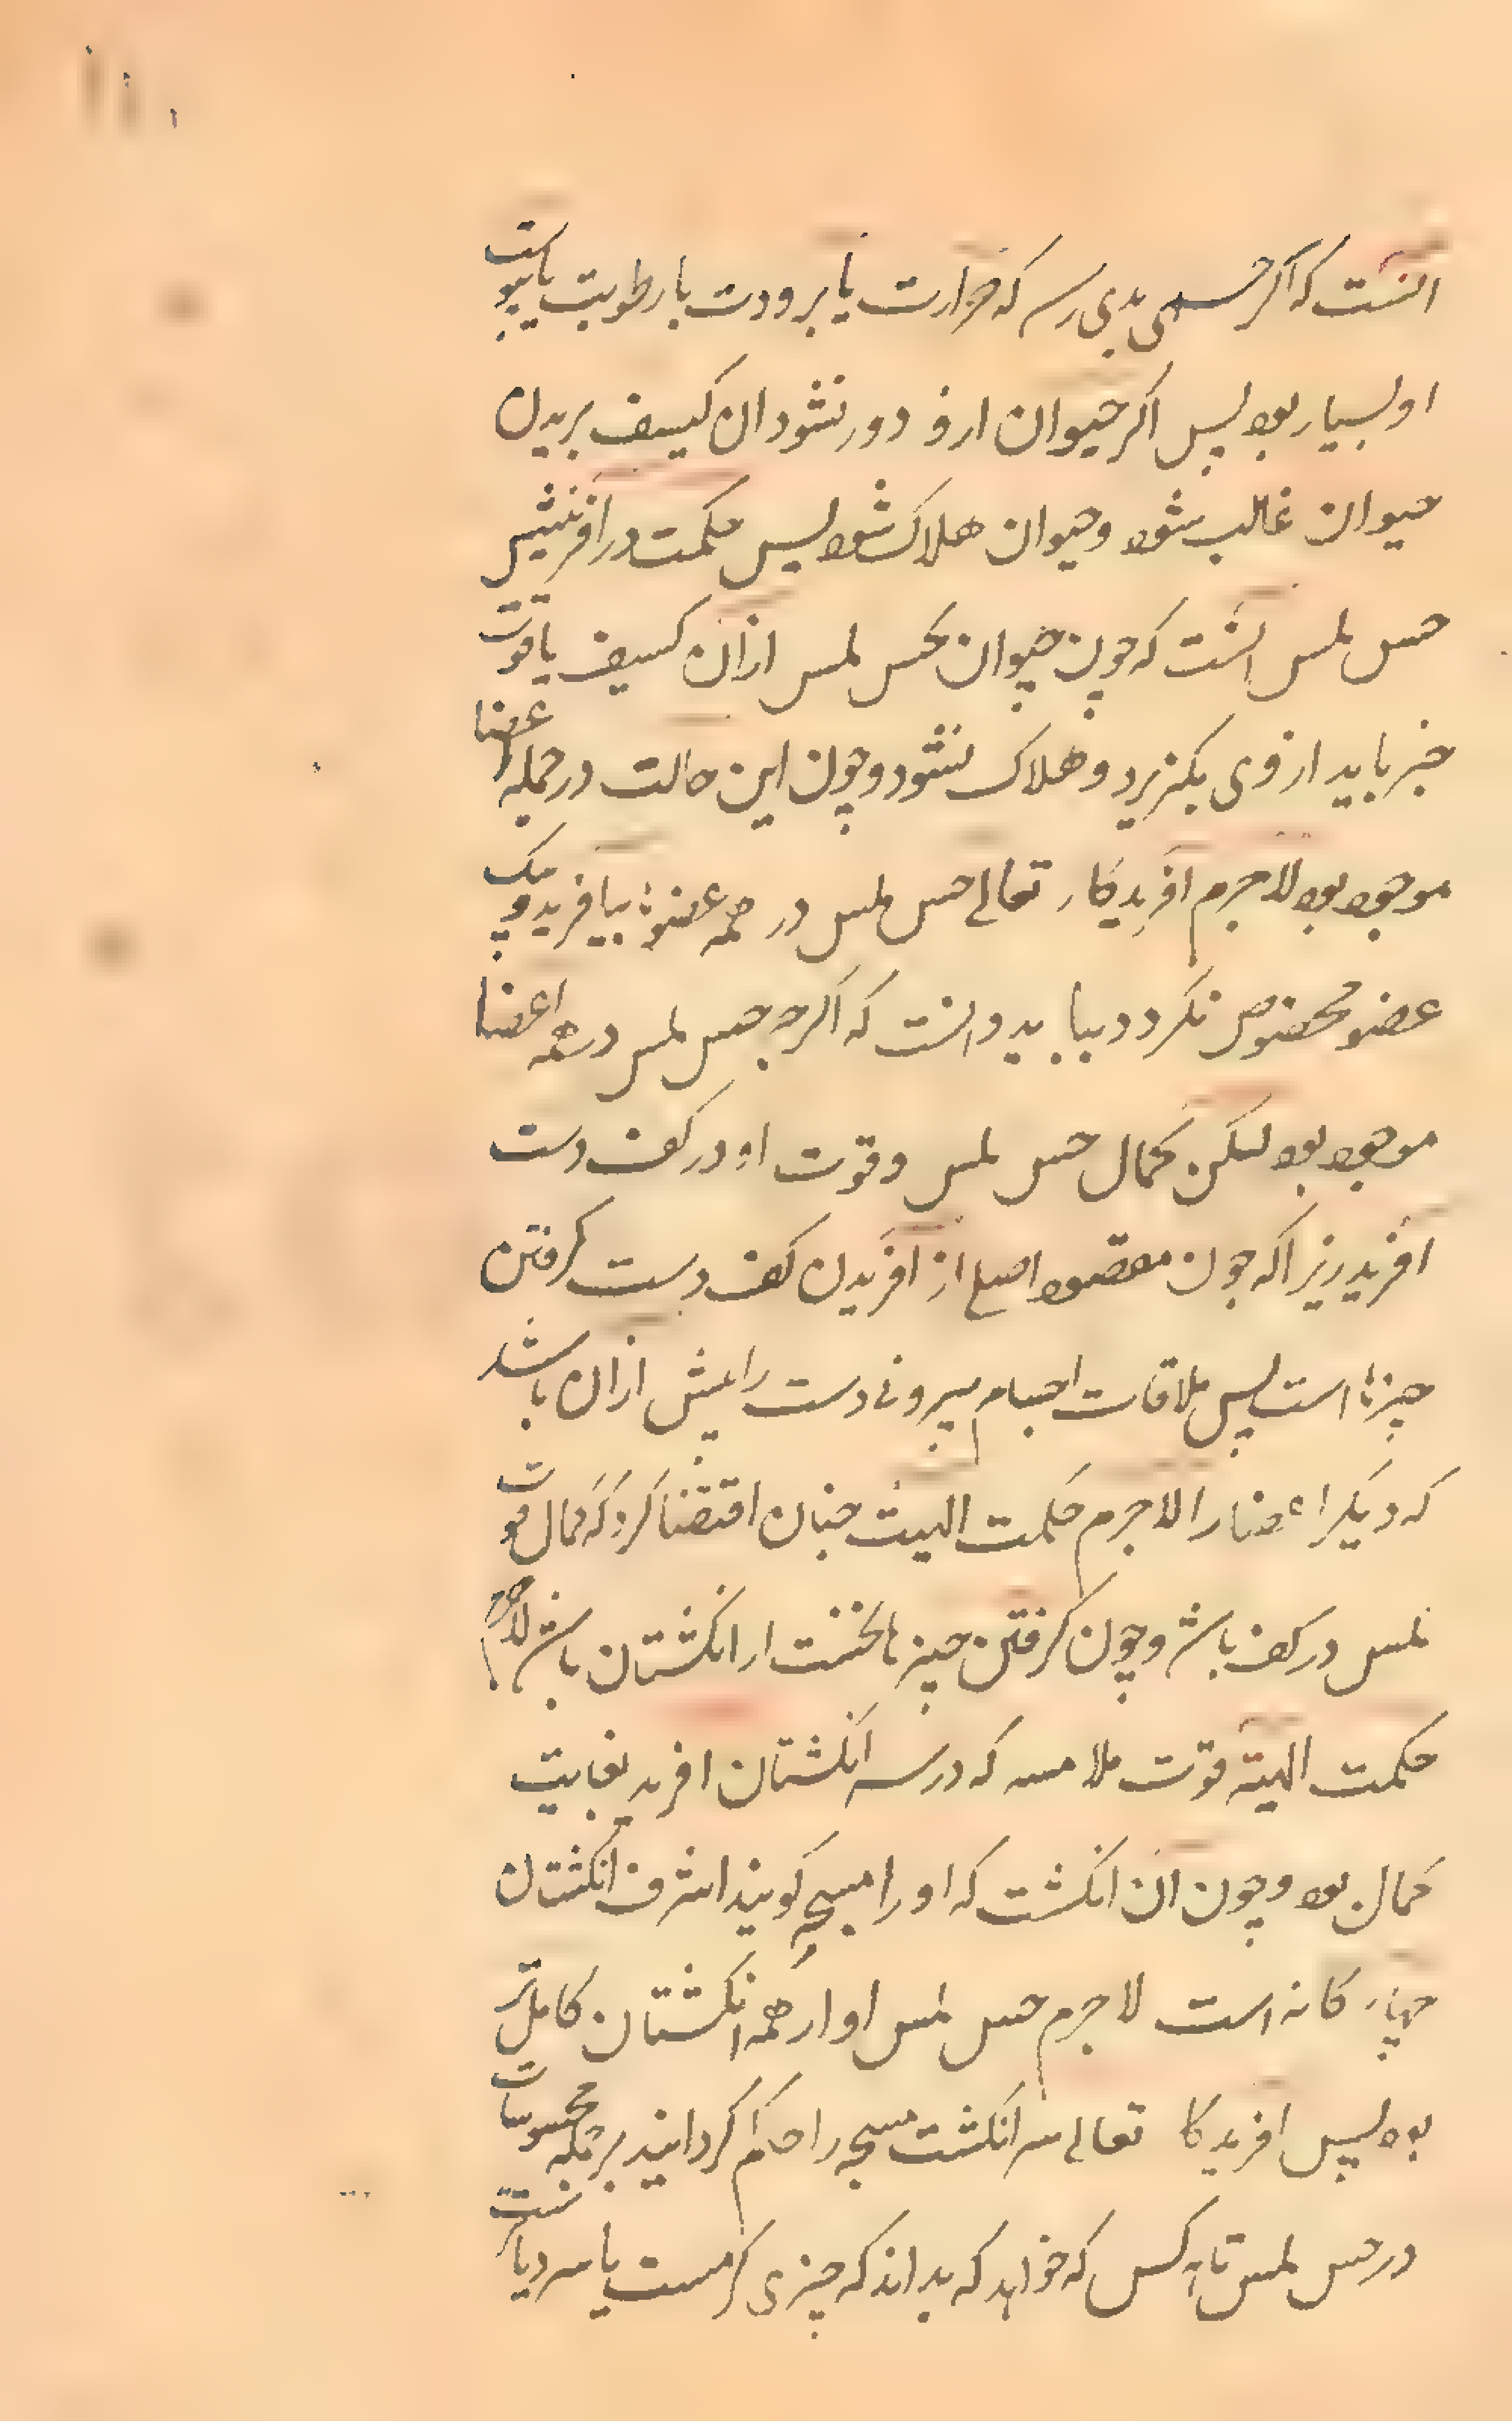 انست که اکر جسمی بدی رسد که حرارت یا برودت یا رطوبت یا یبوست
او بسیار بود پس اکر حیوان ازو دور نشود ان کیسف بر بدن
حیوان غالب شود و حیوان هلاک شود پس حکمت در افرینش
حس لمس انست که چون حیوان بحس لمس ازان کسیف یا قوت
خبر یابد از وی بکریزد و هلاک نشود و چون این حالت در جمله اعضا
موجود بود لاجرم افریدکار تعالی حس لمس در همه عضوها بیافرید و بیک
عضو مخصوص نکرد و بباید دانست که اکرچه حس لمس در همه اعضا
موجود بود لیکن کمال حس لمس و قوت او در کف دست
افرید زیرا که چون مقصود اصلی از افریدن کف دست کرفتن
چیزها است پس ملاقات اجسام بیرونی دست را بیش ازان باشد
که دیکر اعضا را لاجرم حکمت الهیت چنان اقتضا کرد که کمال قوت
لمس در کف باشد و چون کرفتن چیزها نخست از انکشتان باشد لاجرم
حکمت الهیته قوت ملامسه که در سر انکشتان افرید بغایت
کمال بود و چون ان انکشت که او را مسبحه کویند اشرف انکشتان
چهار کانه است لاجرم حس لمس او از همه انکشتان کامل تر
بود پس افریدکا تعالی سر انکشت مسبحه را حاکم کردانید بر جمله محسوسات
در حس لمس تا هر کس که خواهد که بداند که چیزی کرمست یا سرد یا